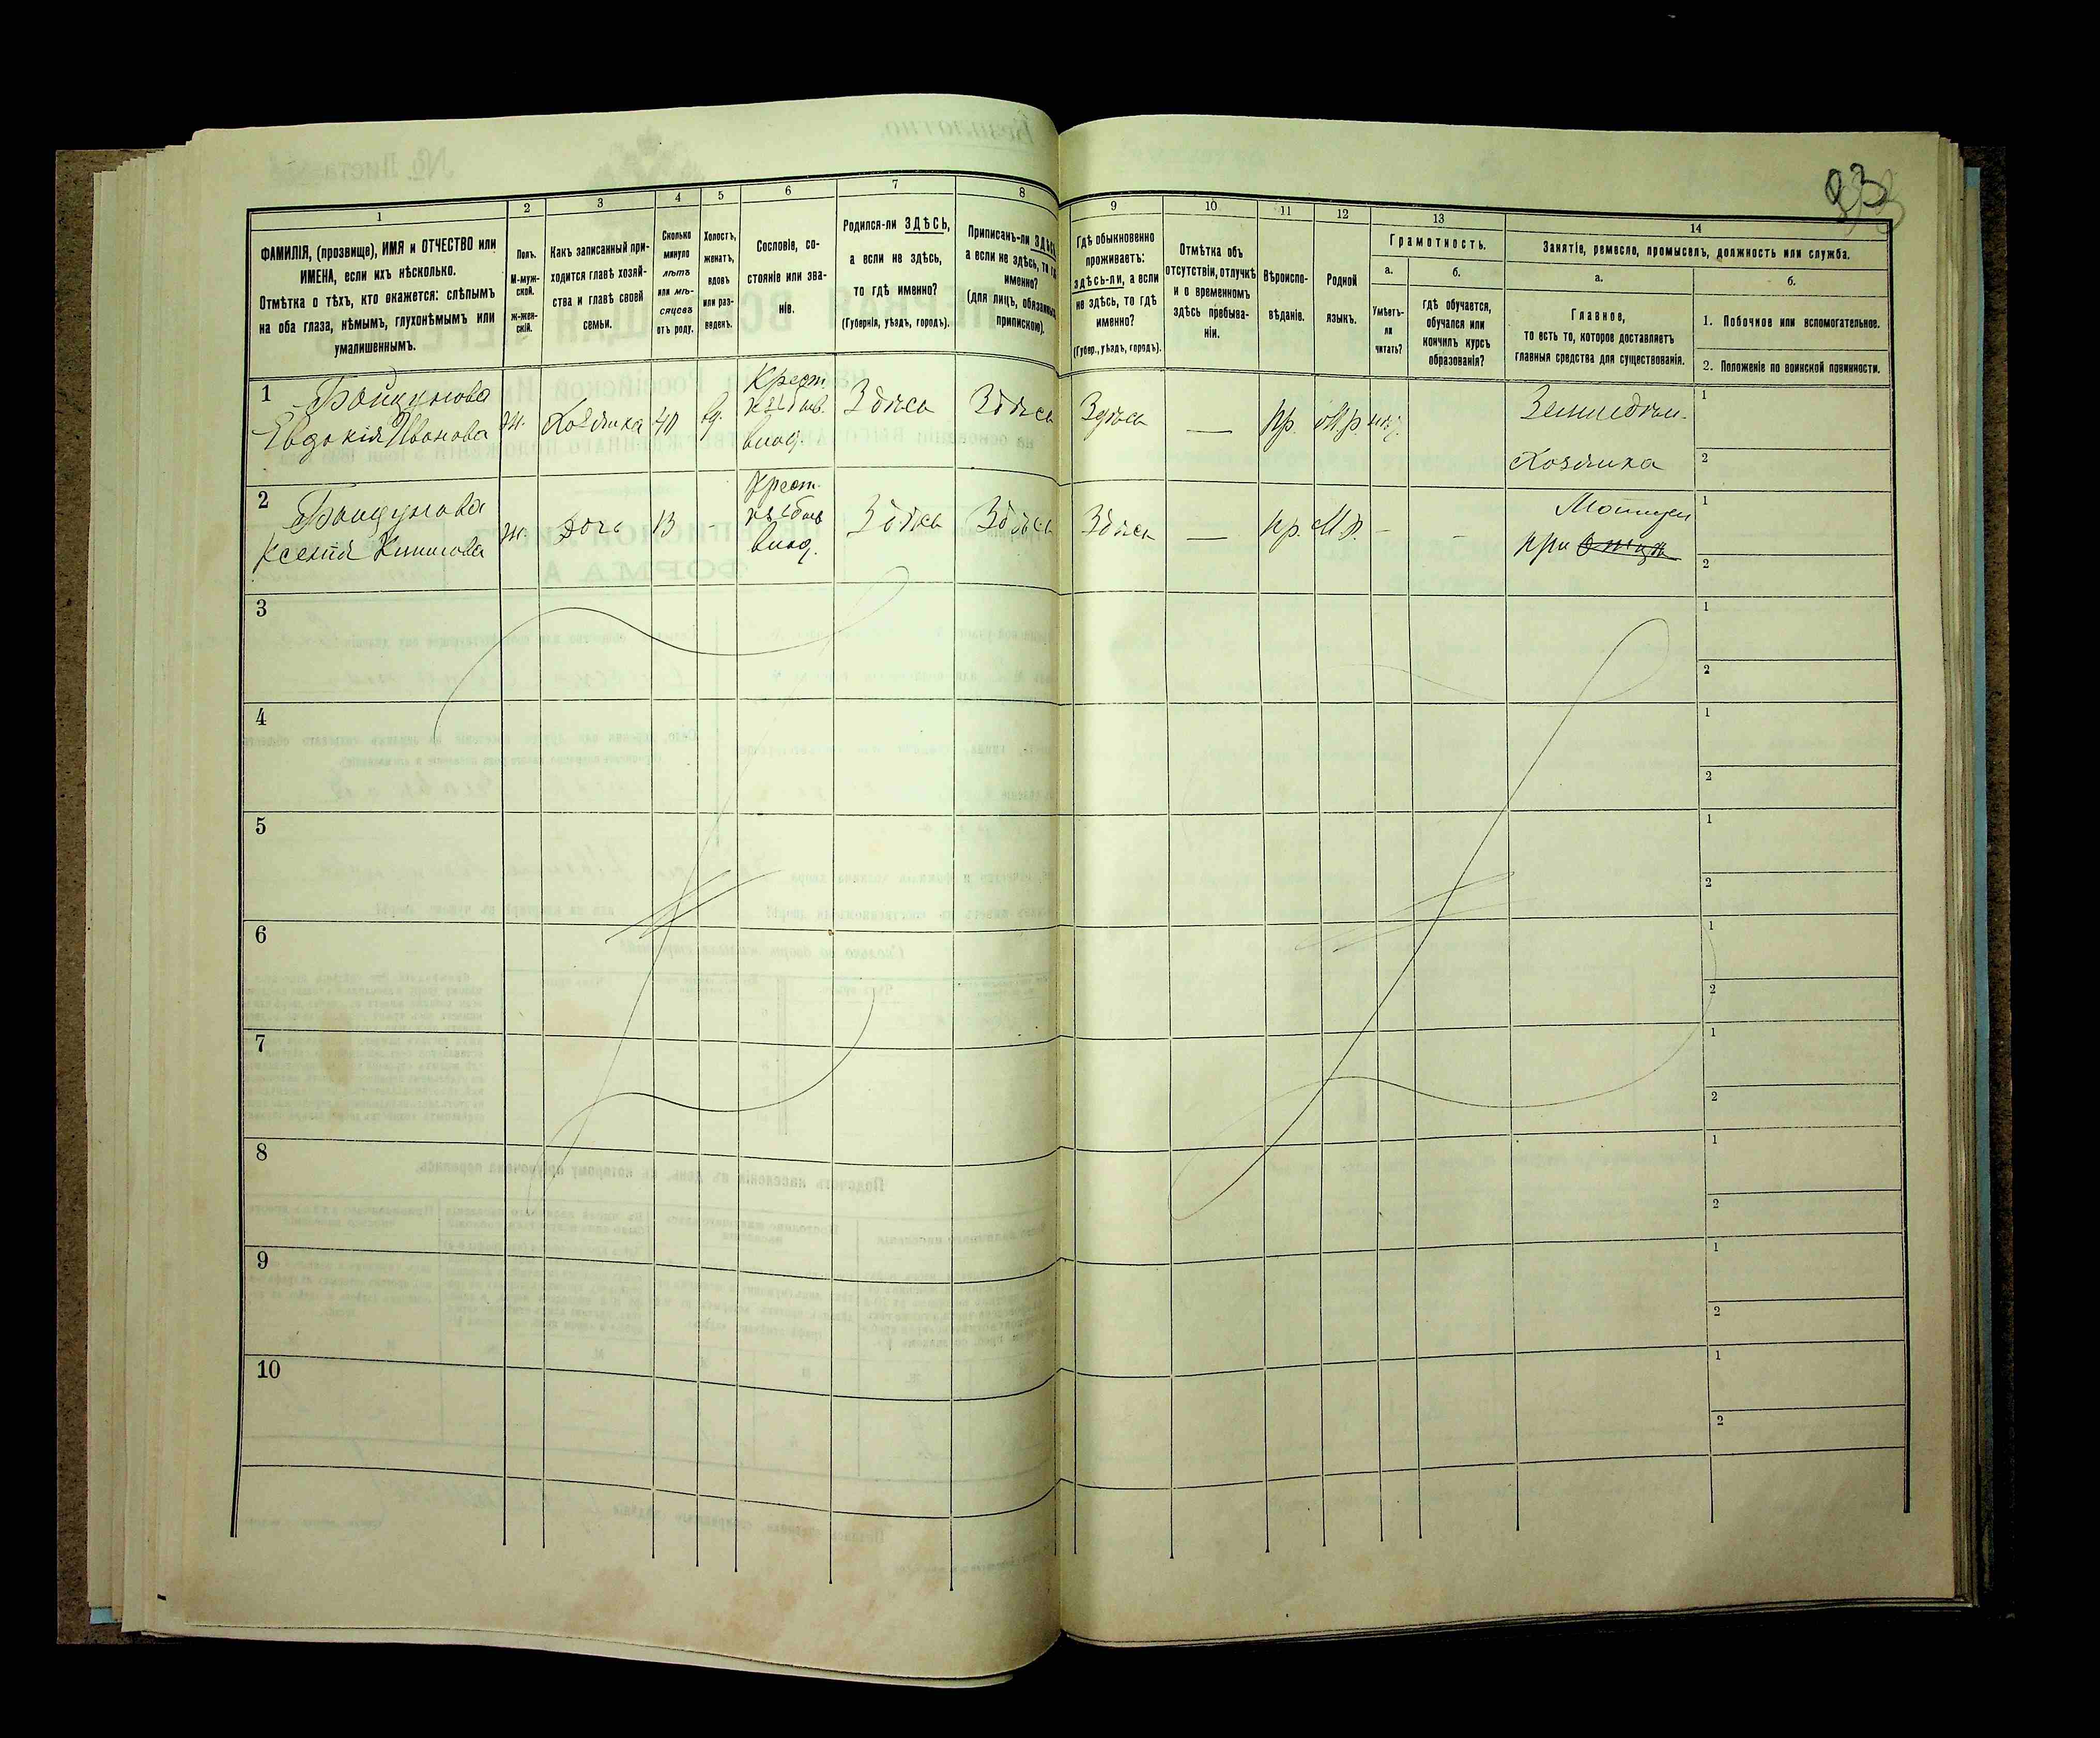 93
1
2
3
4
5
6
7
8
9
10
11
12
13
14
ФАМИЛІЯ, (прозвище), ИМЯ и ОТЧЕСТВО или
ИМЕНА, если ихъ нѣсколько.
Отмѣтка о тѣхъ, кто окажется: слѣпымъ
на оба глаза, нѣмымъ, глухонѣмымъ или
умалишеннымъ.
Полъ.
М-муж-
ской.
Ж-жен-
скій.
Какъ записанный при-
ходится главѣ хозяй-
ства и главѣ своей
семьи.
Сколько
минуло
лѣтъ
или мѣ-
сяцевъ
отъ роду.
Холостъ,
женатъ,
вдовъ
или раз-
веденъ.
Сословіе, со-
стояніе или зва-
ніе.
Родился-ли ЗДѢСЬ,
а если не здѣсь,
то гдѣ именно?
(Губернія, уѣздъ, городъ).
Приписанъ-ли ЗДѢСЬ,
а если не здѣсь, то гдѣ
именно?
(для лицъ, обязанныхъ
припискою).
Гдѣ обыкновенно
проживаетъ:
здѣсь-ли, а если
не здѣсь, то гдѣ
именно?
(Губер., уѣздъ, городъ).
Отмѣтка объ
отсутствіи, отлучкѣ
и о временномъ
здѣсь пребыва-
ніи.
Вѣроиспо-
вѣданіе.
Родной
языкъ.
Грамотность.
а.
Умѣетъ-
ли
читать?
б.
гдѣ обучается,
обучался или
кончилъ курсъ
образованія?
Занятіе, ремесло, промыселъ, должность или служба.
а.
Главное,
то есть то, которое доставляетъ
главныя средства для существованія.
б.
1. Побочное или вспомогательное.
2. Положеніе по воинской повинности.
1
Евдокія Иванова
ж.
Хозяйка
40
вд.
Крест.
влад.
Здѣсь
Здѣсь
Здѣсь
—
пр.
М.р.
нѣт
Земледѣл.
Хозяйка
1
2
2
Ксенія
ж.
Дочь
13
-
Крест.
влад.
Здѣсь
Здѣсь
Здѣсь
—
пр.
М.р.
-
-
при
1
2
3
1
2
4
1
2
5
1
2
6
1
2
7
1
2
8
1
2
9
1
2
10
1
2